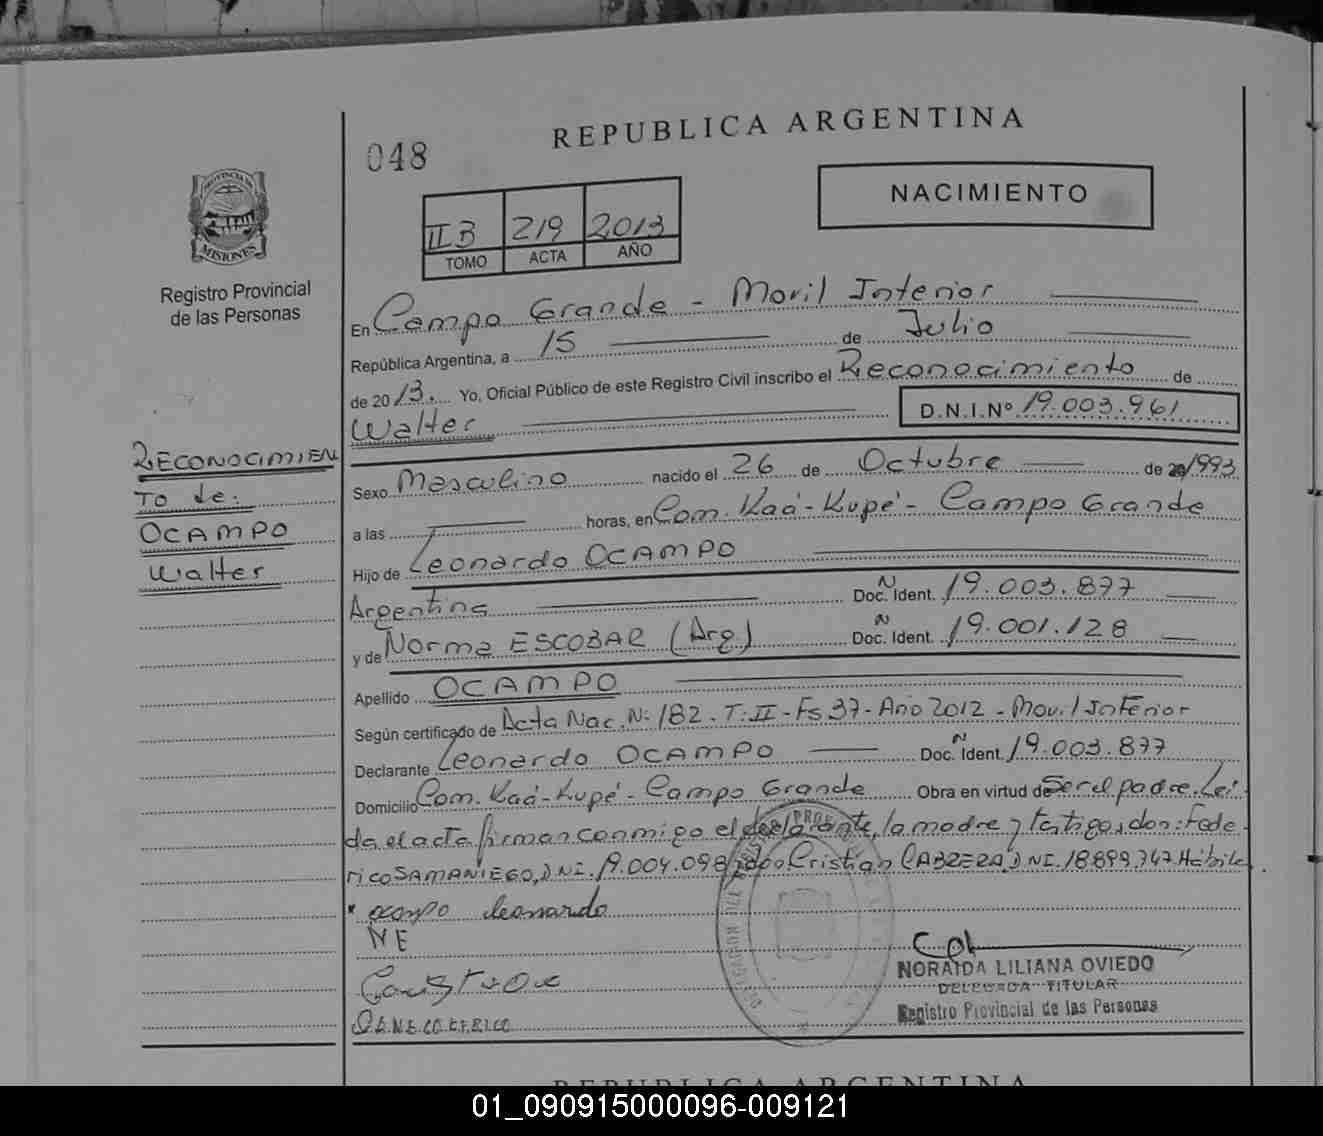 REPUBLICA ARGENTINA
048
NACIMIENTO
PROVINCIA DE
MISIONES
Registro Provincial
de las Personas
II B 219 2013
TOMO ACTA AÑO
En Campo Grande - Movil Interior
República Argentina, a 15 de Julio
de 2013. Yo, Oficial Público de este Registro Civil inscribo el Reconocimiento de
Walter D.N.I.Nº 19.003.961
RECONOCIMIEN
TO de:
OCAMPO
Walter
Sexo Masculino nacido el 26 de Octubre de 20/993
a las horas, en Com. Kaá-Kupé - Campo Grande
Hijo de Leonardo OCAMPO
Argentina Doc. Ident. 19.003.877
y de Norma ESCOBAR (Arg) Doc. Ident. 19.001.128
Apellido OCAMPO
Según certificado de Acta Nac. N: 182. T: II - Fs 37 - Año 2012 - Movil Interior
Declarante Leonardo OCAMPO Doc. Ident. 19.003.877
Domicilio Com. Kaá-Kupé - Campo Grande Obra en virtud de ser el padre. Leí
da el acta firman conmigo el declarante, la madre y testigos, don: Fede
rico SAMANIEGO, DNI. 19.004.098 Cristian CABRERA, DNI. 18.899.747. Hábiles
* ocampo leonardo
NE
NORAIDA LILIANA OVIEDO
DELEGADA TITULAR
Registro Provincial de las Personas
REPUBLICA ARGENTINA
01_090915000096-009121